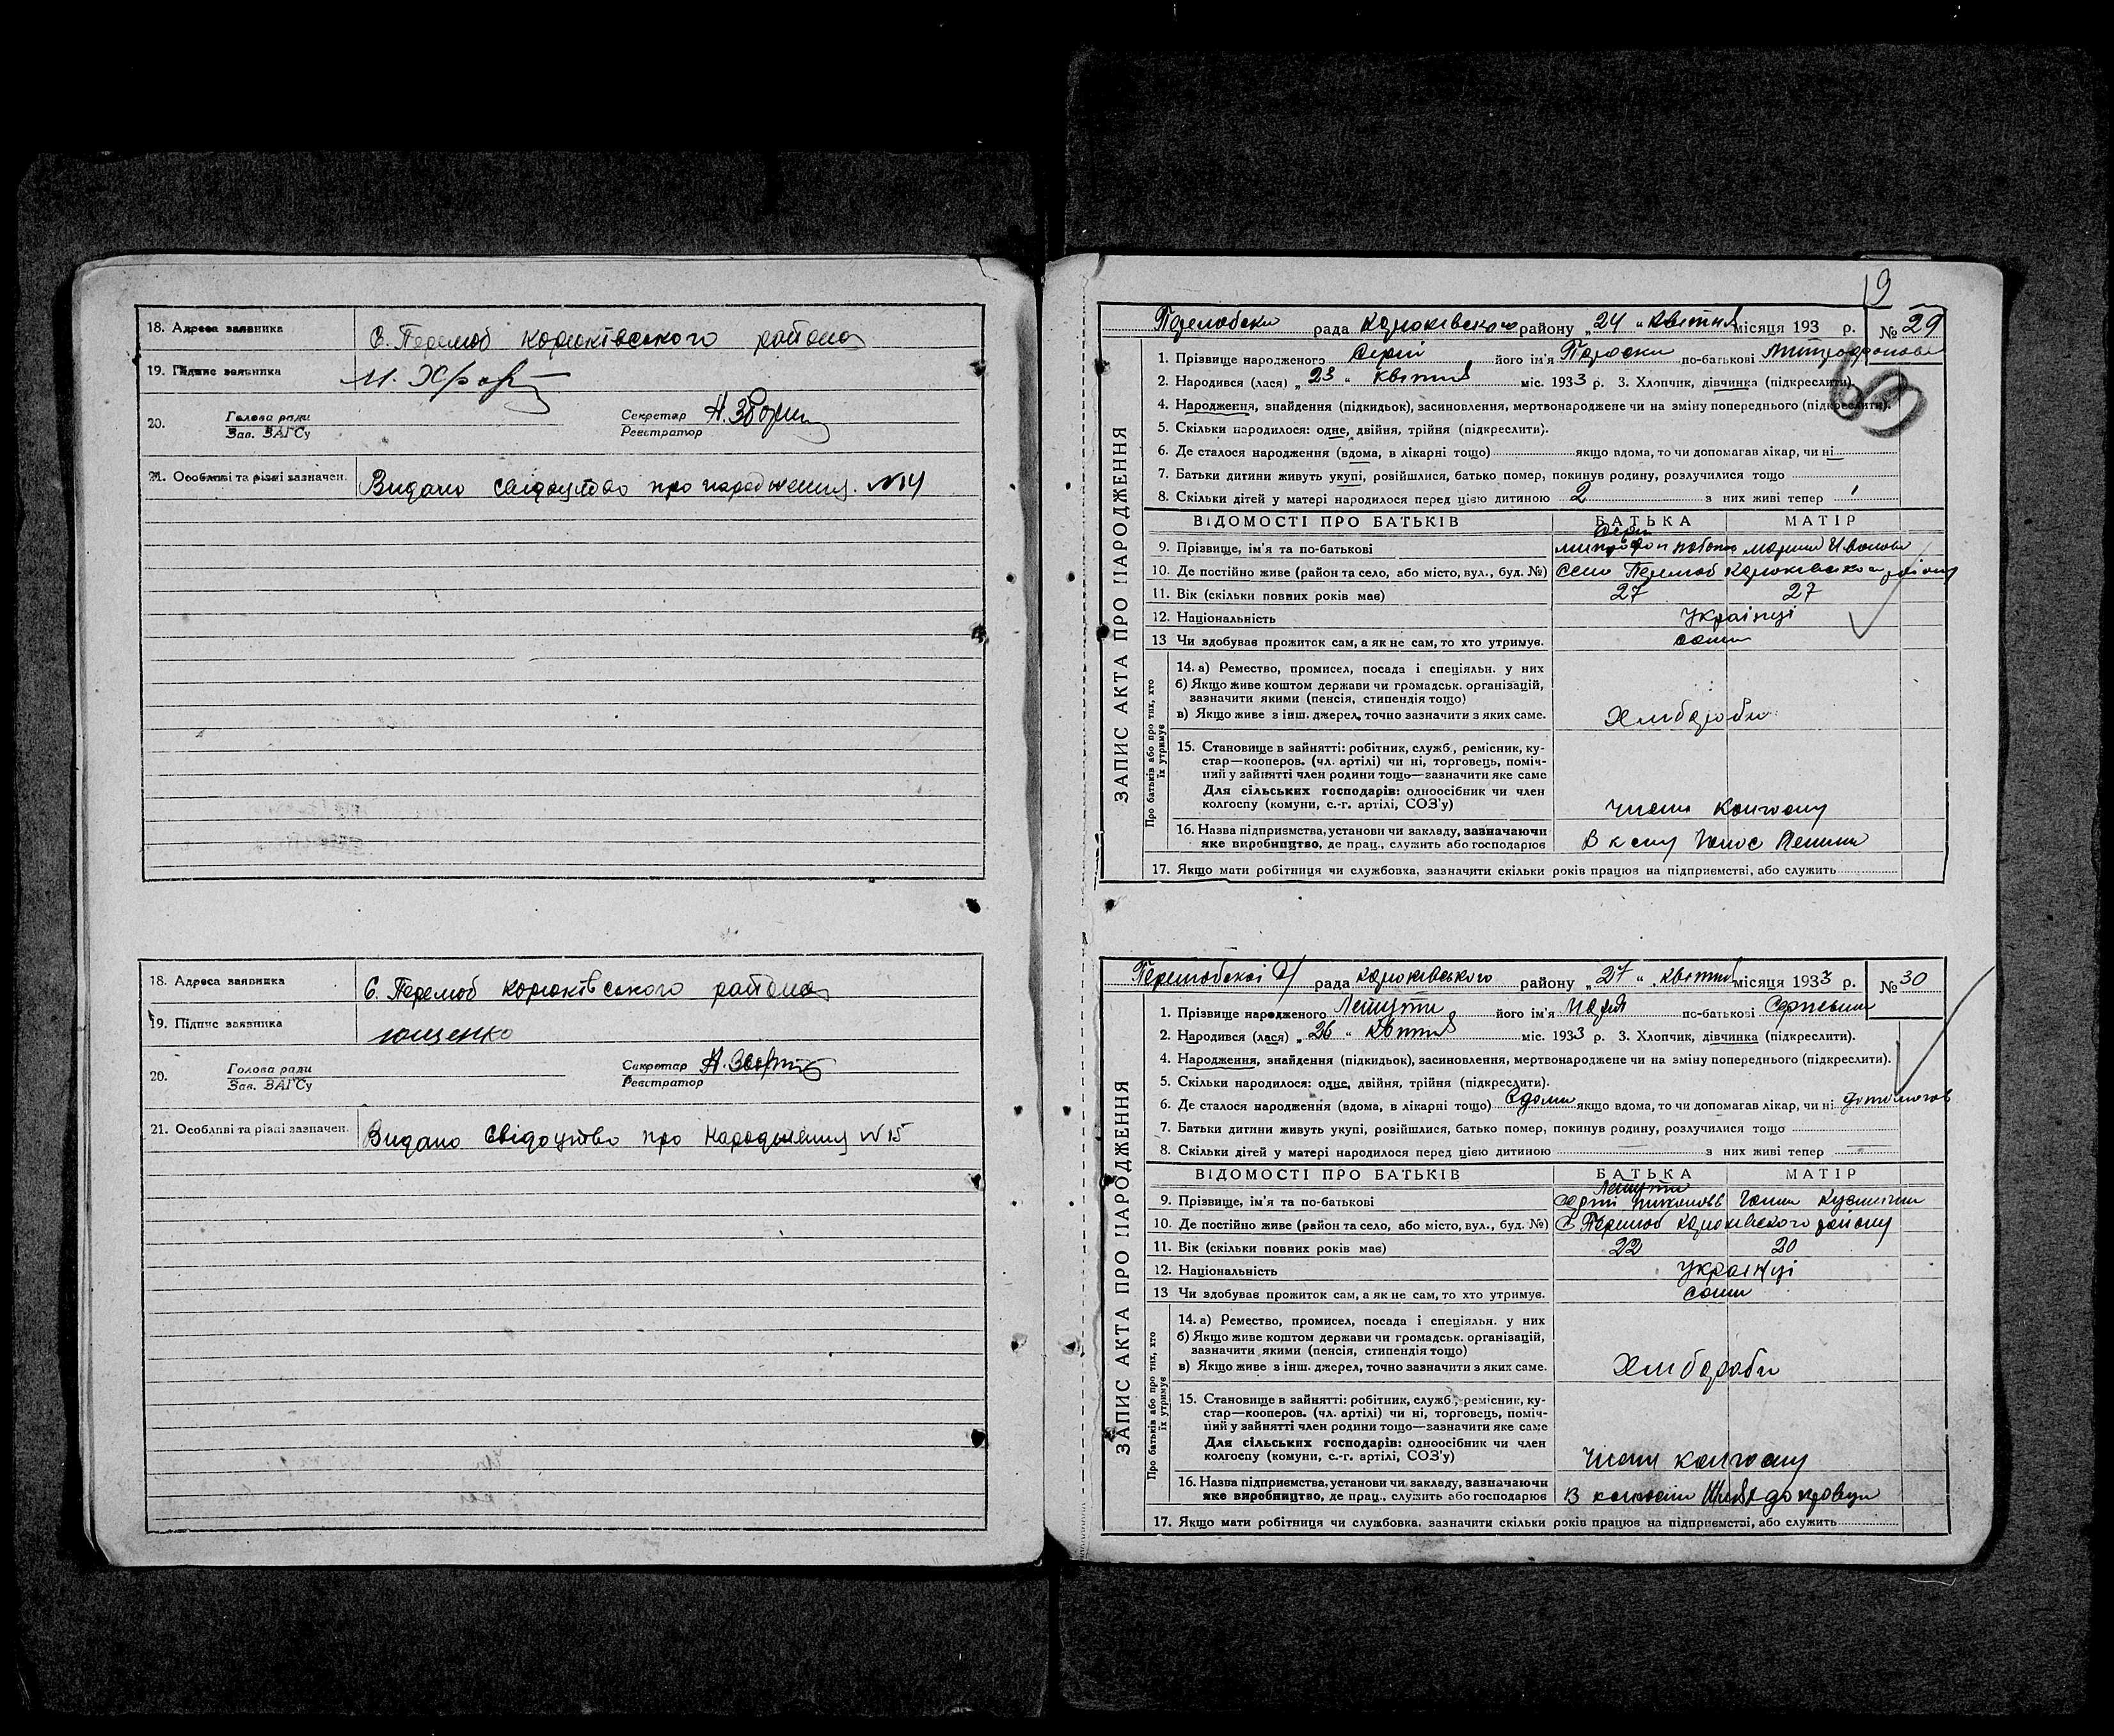 18. Адреса заявника С. Перелюб Корюківського района
19. Підпис заявника
20. Голова ради Зав. ЗАГСу Секретар Реєстратор
21. Особливі та різні зазначен. Видано свідоцтво про народження. №14
18. Адреса заявника С. Перелюб Корюківського района
19. Підпис заявника Ющенко
20. Голова ради Зав. ЗАГСу Секретар Реєстратор
21. Особливі та різні зазначен. Видано Свідоцтво про народження №15
19
рада Корюківського району „24 " квітня місяця 193 р. № 29
ЗАПИС АКТА ПРО НАРОДЖЕННЯ
1. Прізвище народженого його ім'я Параски по-батькові Митрофановни
2. Народився (лася) „ 23 " квітня міс. 1933 р. 3. Хлопчик, дівчинка (підкреслити).
4. Народження, знайдення (підкидьок), засиновлення, мертвонароджене чи на зміну попереднього (підкреслити).
5. Скільки народилося: одне, двійня, трійня (підкреслити).
6. Де сталося народження (вдома, в лікарні тощо) якщо вдома, то чи допомагав лікар, чи ні
7. Батьки дитини живуть укупі, розійшлися, батько помер, покинув родину, розлучилися тощо
8. Скільки дітей у матері народилося перед цією дитиною 2 з них живі тепер 1
ВІДОМОСТІ ПРО БАТЬКІВ БАТЬКА МАТІР
9. Прізвище, ім'я та по-батькові Митрофан Марина Иванов
10. Де постійно живе (район та село, або місто, вул., буд. №) Село Перелюб Корюківського району
11. Вік (скільки повних років має) 27 27
12. Національність Українці
13 Чи здобуває прожиток сам, а як не сам, то хто утримує. сами
Про батьків або про тих, хто їх утримує
14. а) Ремество, промисел, посада і спеціяльн. у них
б) Якщо живе коштом держави чи громадськ. організацій,
зазначити якими (пенсія, стипендія тощо)
в) Якщо живе з інш. джерел, точно зазначити з яких саме. Хлібороби
15. Становище в зайнятті: робітник, служб., ремісник, ку-
стар—кооперов. (чл. артілі) чи ні, торговець, поміч-
ний у зайнятті член родини тощо—зазначити яке саме
Для сільських господарів: одноосібник чи член
колгоспу (комуни, с.-г. артілі, СОЗ'у) Члени колгоспу
16. Назва підприємства, установи чи закладу, зазначаючи
яке виробництво, де прац., служить або господарює
17. Якщо мати робітниця чи службовка, зазначити скільки років працює на підприємстві, або служить
Перелюбскої рада Корюківського району „27 " квітня місяця 1933 р. № 30
ЗАПИС АКТА ПРО НАРОДЖЕННЯ
1. Прізвище народженого його ім'я Надія по-батькові
2. Народився (лася) „ 26 " квітня міс. 1933 р. 3. Хлопчик, дівчинка (підкреслити).
4. Народження, знайдення (підкидьок), засиновлення, мертвонароджене чи на зміну попереднього (підкреслити).
5. Скільки народилося: одне, двійня, трійня (підкреслити).
6. Де сталося народження (вдома, в лікарні тощо) вдома якщо вдома, то чи допомагав лікар, чи ні допомогав
7. Батьки дитини живуть укупі, розійшлися, батько помер, покинув родину, розлучилися тощо
8. Скільки дітей у матері народилося перед цією дитиною з них живі тепер
ВІДОМОСТІ ПРО БАТЬКІВ БАТЬКА МАТІР
9. Прізвище, ім'я та по-батькові
10. Де постійно живе (район та село, або місто, вул., буд. №) С Перелюб Корюківского району
11. Вік (скільки повних років має) 22 20
12. Національність Українці
13 Чи здобуває прожиток сам, а як не сам, то хто утримує. сами
Про батьків або про тих, хто їх утримує
14. а) Ремество, промисел, посада і спеціяльн. у них
б) Якщо живе коштом держави чи громадськ. організацій,
зазначити якими (пенсія, стипендія тощо)
в) Якщо живе з інш. джерел, точно зазначити з яких саме. Хлібороби
15. Становище в зайнятті: робітник, служб., ремісник, ку-
стар—кооперов. (чл. артілі) чи ні, торговець, поміч-
ний у зайнятті член родини тощо—зазначити яке саме
Для сільських господарів: одноосібник чи член
колгоспу (комуни, с.-г. артілі, СОЗ'у) Члени колгоспу
16. Назва підприємства, установи чи закладу, зазначаючи
яке виробництво, де прац., служить або господарює
17. Якщо мати робітниця чи службовка, зазначити скільки років працює на підприємстві, або служить